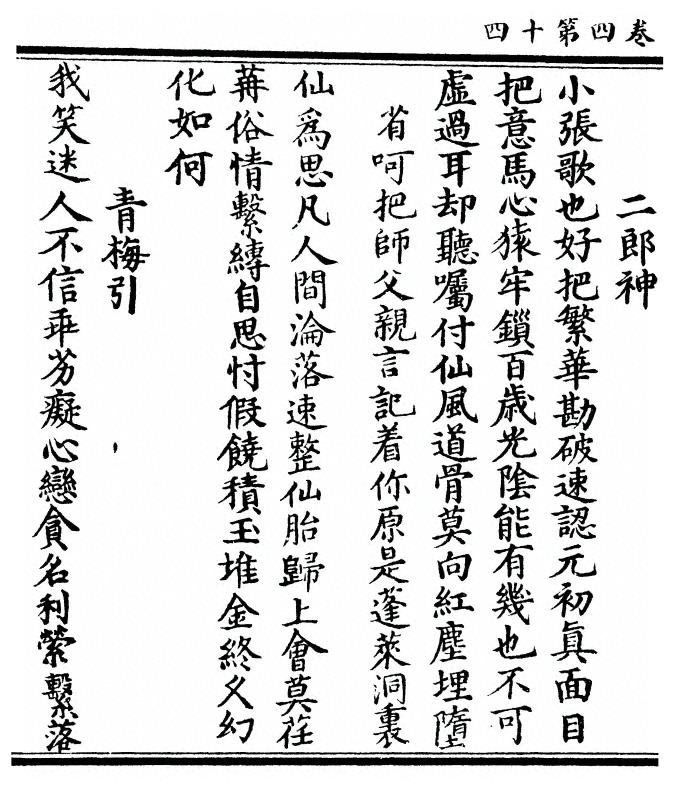 卷四第十四
二郎神
小張歌也好把繁華勘破速認元初眞面目
把意馬心猿牢鎖百歲光陰能有幾也不可
虛過耳却聽囑付仙風道骨莫向紅塵埋墮
省呵把師父親言記着你原是蓬萊洞裏
仙爲思凡人間淪落速整仙胎歸上會莫荏
苒俗情繫縛自思忖假饒積玉堆金終久幻
化如何
青梅引
我笑迷人不信乖劣癡心戀貪名利縈繫落